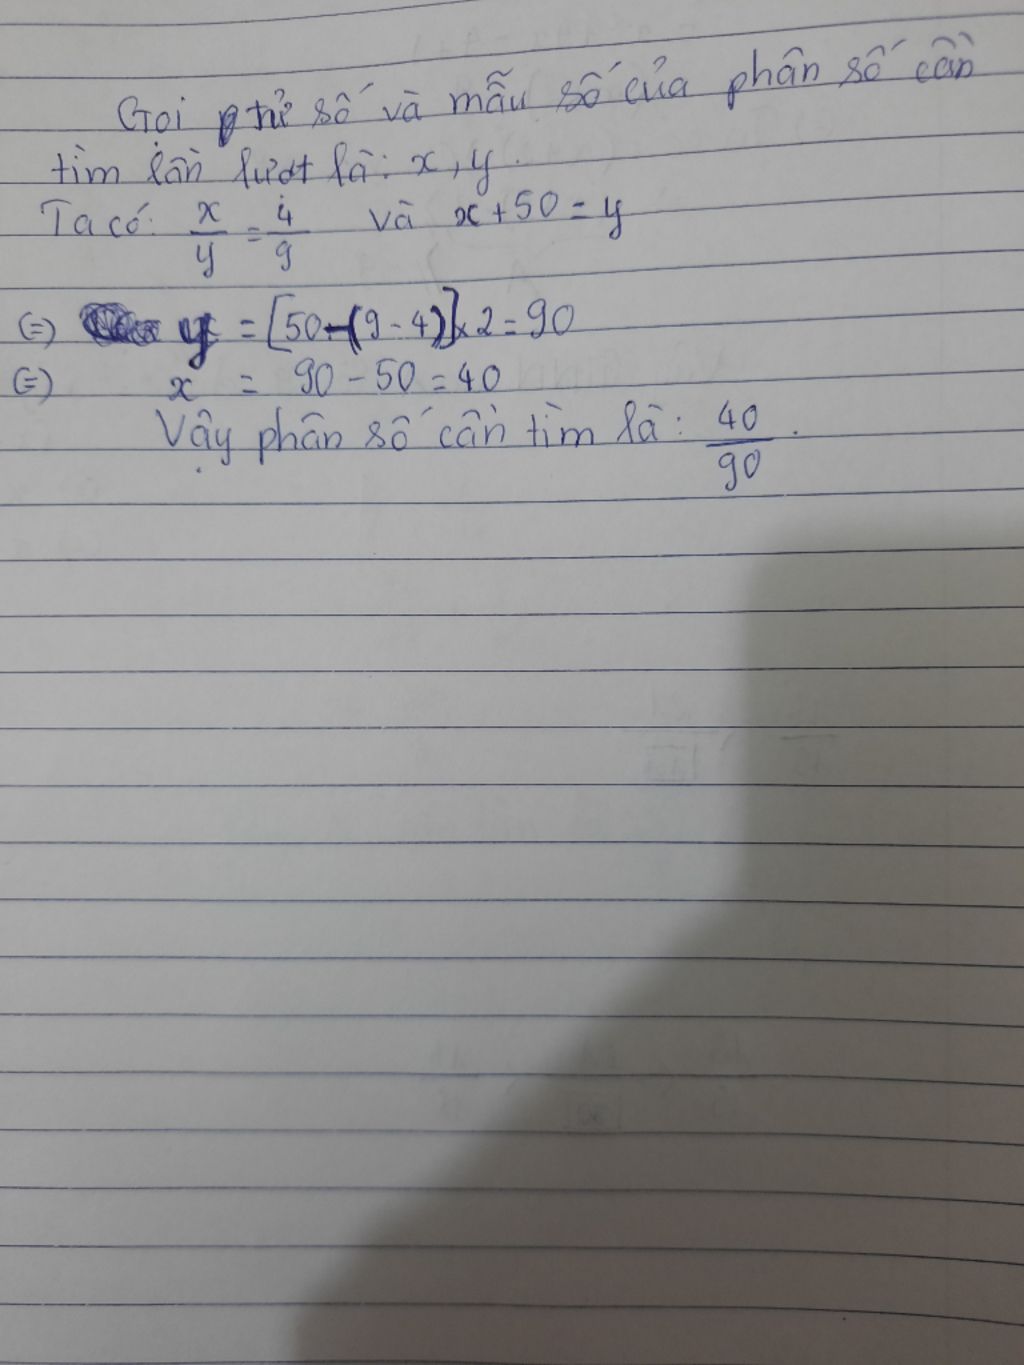 Gọi tử số và mẫu số của phân số cần
tìm lần lượt là: x, y.
Ta có: x/y = 4/9 và x + 50 = y
(=) y = [50-(9-4)]x2 = 90
(=) x = 90 - 50 = 40
Vậy phân số cần tìm là: 40/90.